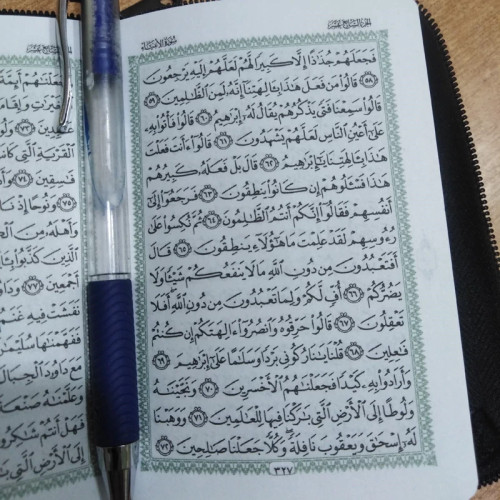 سُورَةُ الْأَنْبِيَاءِ الجزء السابع عشر
فَجَعَلَهُمْ جُذَٰذًا إِلَّا كَبِيرًا لَّهُمْ لَعَلَّهُمْ إِلَيْهِ يَرْجِعُونَ
﴿٥٨﴾ قَالُوا۟ مَن فَعَلَ هَٰذَا بِـَٔالِهَتِنَآ إِنَّهُۥ لَمِنَ ٱلظَّٰلِمِينَ ﴿٥٩﴾
قَالُوا۟ سَمِعْنَا فَتًى يَذْكُرُهُمْ يُقَالُ لَهُۥٓ إِبْرَٰهِيمُ ﴿٦٠﴾ قَالُوا۟ فَأْتُوا۟ بِهِۦ
عَلَىٰٓ أَعْيُنِ ٱلنَّاسِ لَعَلَّهُمْ يَشْهَدُونَ ﴿٦١﴾ قَالُوٓا۟ ءَأَنتَ فَعَلْتَ
هَٰذَا بِـَٔالِهَتِنَا يَٰٓإِبْرَٰهِيمُ ﴿٦٢﴾ قَالَ بَلْ فَعَلَهُۥ كَبِيرُهُمْ
هَٰذَا فَسْـَٔلُوهُمْ إِن كَانُوا۟ يَنطِقُونَ ﴿٦٣﴾ فَرَجَعُوٓا۟ إِلَىٰٓ
أَنفُسِهِمْ فَقَالُوٓا۟ إِنَّكُمْ أَنتُمُ ٱلظَّٰلِمُونَ ﴿٦٤﴾ ثُمَّ نُكِسُوا۟ عَلَىٰ
رُءُوسِهِمْ لَقَدْ عَلِمْتَ مَا هَٰٓؤُلَآءِ يَنطِقُونَ ﴿٦٥﴾ قَالَ
أَفَتَعْبُدُونَ مِن دُونِ ٱللَّهِ مَا لَا يَنفَعُكُمْ شَيْـًٔا وَلَا
يَضُرُّكُمْ ﴿٦٦﴾ أُفٍّ لَّكُمْ وَلِمَا تَعْبُدُونَ مِن دُونِ ٱللَّهِ أَفَلَا
تَعْقِلُونَ ﴿٦٧﴾ قَالُوا۟ حَرِّقُوهُ وَٱنصُرُوٓا۟ ءَالِهَتَكُمْ إِن كُنتُمْ
فَٰعِلِينَ ﴿٦٨﴾ قُلْنَا يَٰنَارُ كُونِى بَرْدًا وَسَلَٰمًا عَلَىٰٓ إِبْرَٰهِيمَ ﴿٦٩﴾
وَأَرَادُوا۟ بِهِۦ كَيْدًا فَجَعَلْنَٰهُمُ ٱلْأَخْسَرِينَ ﴿٧٠﴾ وَنَجَّيْنَٰهُ
وَلُوطًا إِلَى ٱلْأَرْضِ ٱلَّتِى بَٰرَكْنَا فِيهَا لِلْعَٰلَمِينَ ﴿٧١﴾ وَوَهَبْنَا
لَهُۥٓ إِسْحَٰقَ وَيَعْقُوبَ نَافِلَةً وَكُلًّا جَعَلْنَا صَٰلِحِينَ ﴿٧٢﴾
٣٢٧
أَئِمَّةً
﴿٧٣﴾ وَلُوطًا
ٱلْقَرْيَةِ ٱلَّتِى
فَٰسِقِينَ ﴿٧٤﴾
﴿٧٥﴾ وَنُوحًا إِذْ
وَأَهْلَهُۥ مِنَ
ٱلَّذِينَ كَذَّبُوا۟
أَجْمَعِينَ ﴿٧٧﴾
نَفَشَتْ فِيهِ غَنَمُ
فَفَهَّمْنَٰهَا سُلَيْمَٰنَ
مَعَ دَاوُۥدَ ٱلْجِبَالَ
وَعَلَّمْنَٰهُ صَنْعَةَ
فَهَلْ أَنتُمْ شَٰكِرُونَ
إِلَى ٱلْأَرْضِ ٱلَّتِى